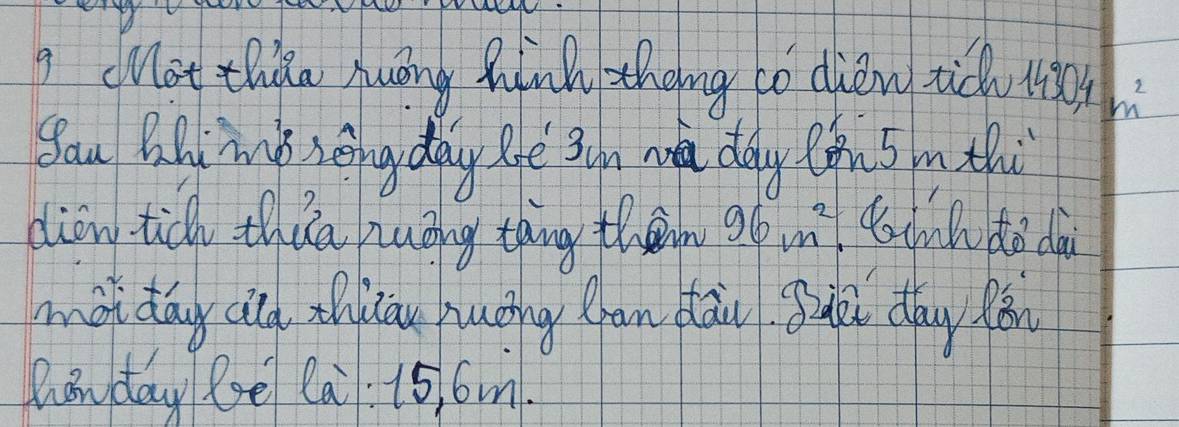 9 Một thửa ruộng hình thang có diện tích 1430,4 m²
Sau khi mở rộng đáy bé 3m và đáy lớn 5m thì
diện tích thửa ruộng tăng thêm 96 m². Tính độ dài
mỗi đáy của thửa ruộng ban đầu. Biết đáy lớn
hơn đáy bé là: 15,6m.